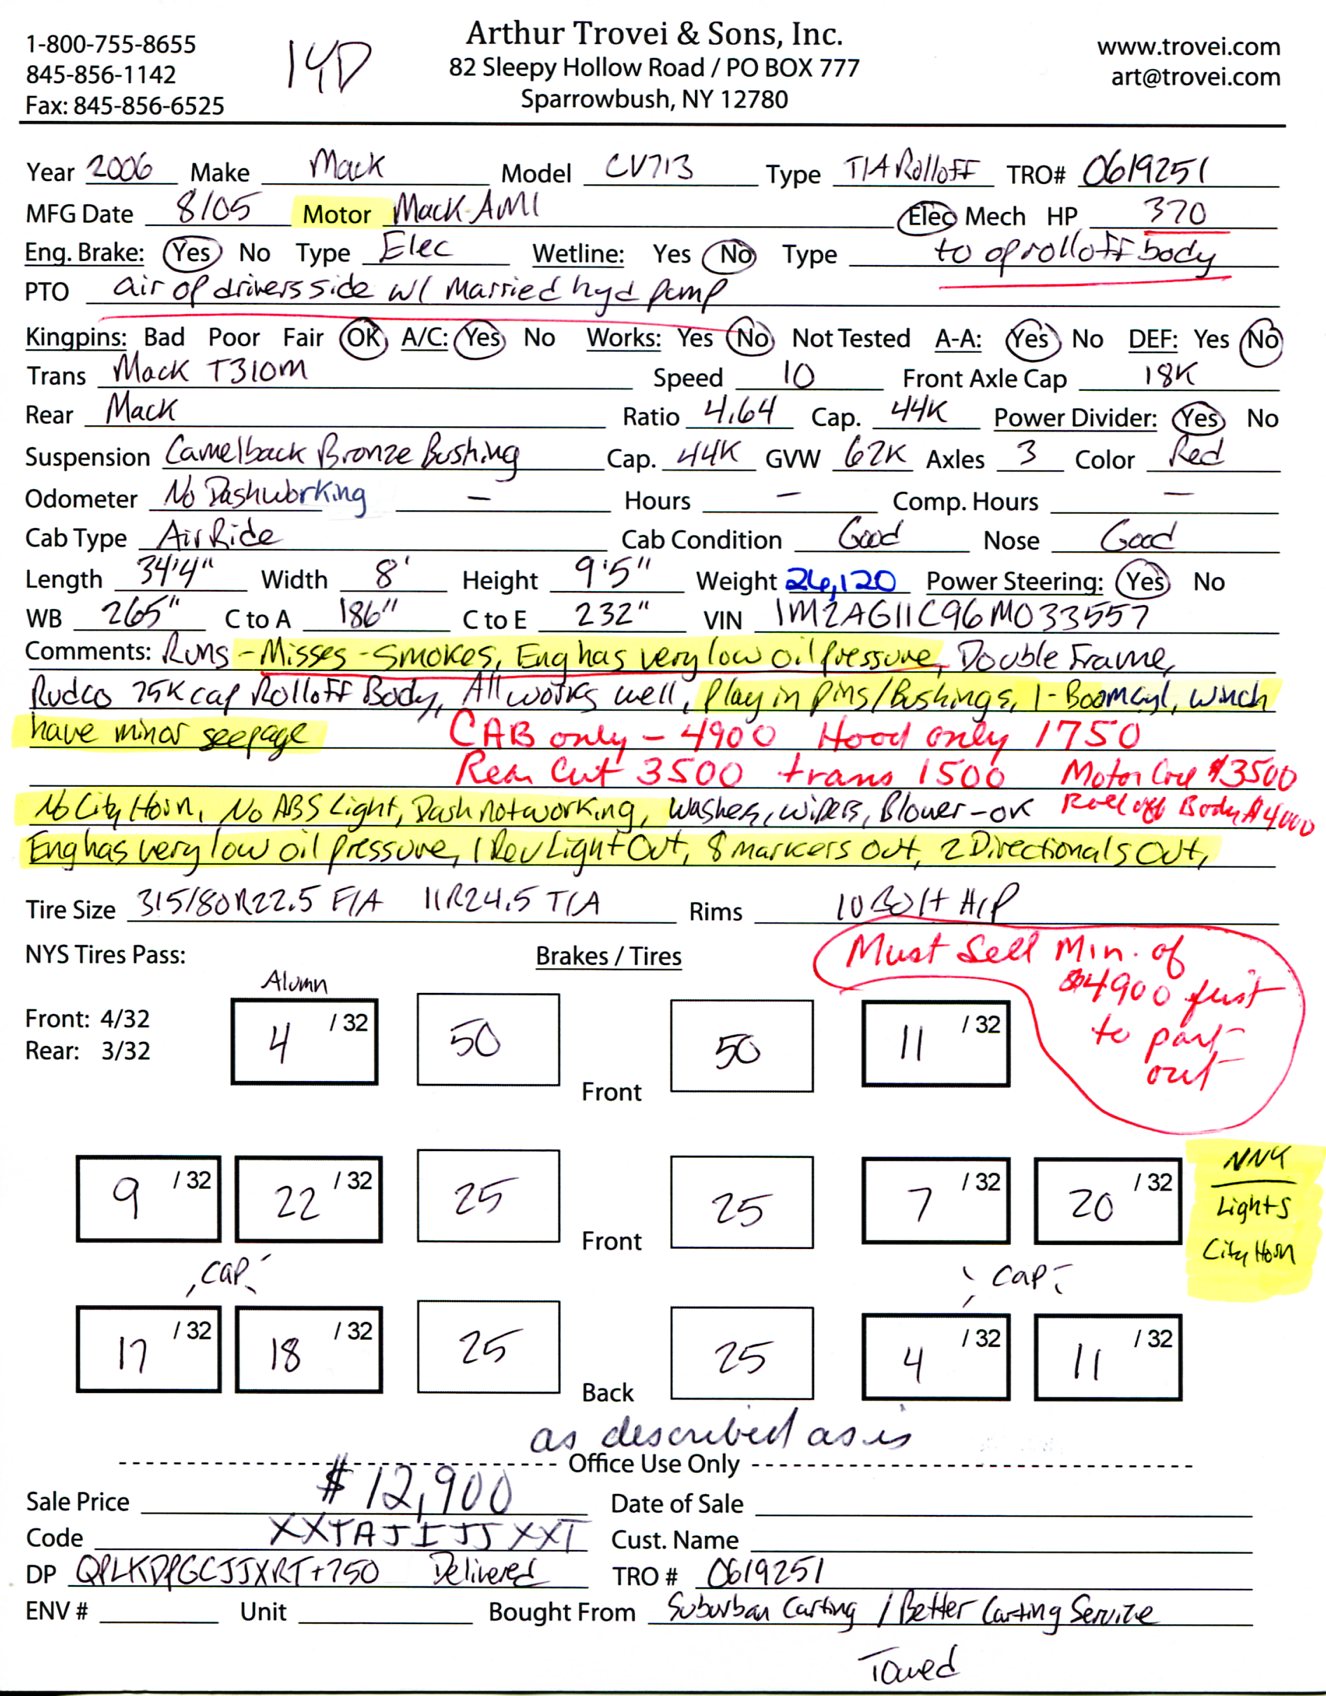 1-800-755-8655
845-856-1142
Fax: 845-856-6525
14D
Arthur Trovei & Sons, Inc.
82 Sleepy Hollow Road / PO BOX 777
Sparrowbush, NY 12780
www.trovei.com
art@trovei.com
Year 2006 Make Mack Model CV713 Type T/A Rolloff TRO# 0619251
MFG Date 8/05 Motor Mack AMI Elec Mech HP 370
Eng. Brake: Yes No Type Elec Wetline: Yes No Type to op rolloff body
PTO air op drivers side w/ Married hyd pump
Kingpins: Bad Poor Fair OK A/C: Yes No Works: Yes No Not Tested A-A: Yes No DEF: Yes No
Trans Mack T310M Speed 10 Front Axle Cap 18K
Rear Mack Ratio 4.64 Cap. 44K Power Divider: Yes No
Suspension Camelback Bronze Bushing Cap. 44K GVW 62K Axles 3 Color Red
Odometer No Dash working — Hours — Comp. Hours —
Cab Type Air Ride Cab Condition Good Nose Good
Length 34'4" Width 8' Height 9'5" Weight 26,120 Power Steering: Yes No
WB 265" C to A 186" C to E 232" VIN 1M2AG11C96M033557
Comments: Runs - Misses - Smokes, Eng has very low oil pressure, Double Frame,
Rudco 75K cap Rolloff Body, All works well, Play in pins/Bushings, 1-Boom cyl, winch
have minor seepage CAB only - 4900 Hood only 1750
Rear Cut 3500 trans 1500 Motor Core $3500
No City Horn, No ABS Light, Dash not working, Washer, wipers, Blower - OK Roll off Body $4000
Eng has very low oil pressure, 1 Rev Light Out, 8 markers out, 2 Directionals Out,
Tire Size 315/80R22.5 F/A 11R24.5 T/A Rims 10 Bolt H/P
NYS Tires Pass: Brakes / Tires
Must Sell Min. of
$4900 first
to part
out
Alumn
Front: 4/32
Rear: 3/32
4 /32 50 Front 50 11 /32
9 /32 22 /32 25 Front 25 7 /32 20 /32
NNY
Lights
City Horn
Cap Cap
17 /32 18 /32 25 Back 25 4 /32 11 /32
as described as is
Office Use Only
Sale Price $12,900 Date of Sale
Code XXTAJIJJXXT Cust. Name
DP QPLKDPGCJJXRT+750 Delivered TRO # 0619251
ENV # Unit Bought From Suburban Carting / Better Carting Service
Towed